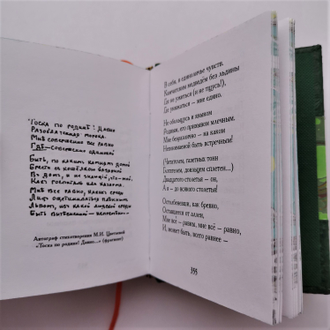 "Тоска по родине! Давно
Разоблаченная морока.
Мне совершенно все равно
Где — совершенно одинокой
Быть, по каким камням домой
Брести с кошелкою базарной
В дом, и не знающий, что — мой,
Как госпиталь или казарма.
Мне все равно, каких среди
Лиц
Львом, из какой людской среды
Быть вытесненной — непременно —
Автограф стихотворения М.И. Цветаевой
«Тоска по родине! Давно...» (фрагмент)
В себя, в единоличье чувств.
Камчатским медведём без льдины
Где не ужиться (и не тщусь!),
Где унижаться — мне едино.
Не обольщусь и языком
Родным, его призывом млечным.
Мне безразлично — на каком
Непонимаемой быть встречным!
(Читателем, газетных тонн
Глотателем, доильцем сплетен...)
Двадцатого столетья — он,
А я — до всякого столетья!
Остолбеневши, как бревно,
Оставшееся от аллеи,
Мне все — равны, мне всё — равно,
И, может быть, всего равнее —
395